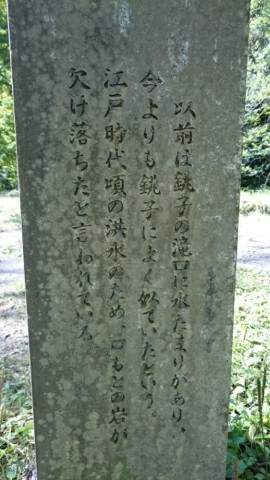 以前は銚子の滝口に水たまりがあり、
今よりも銚子によく似ていたという。
江戸時代頃の洪水のため、口もとの岩が
欠け落ちたと言われている。